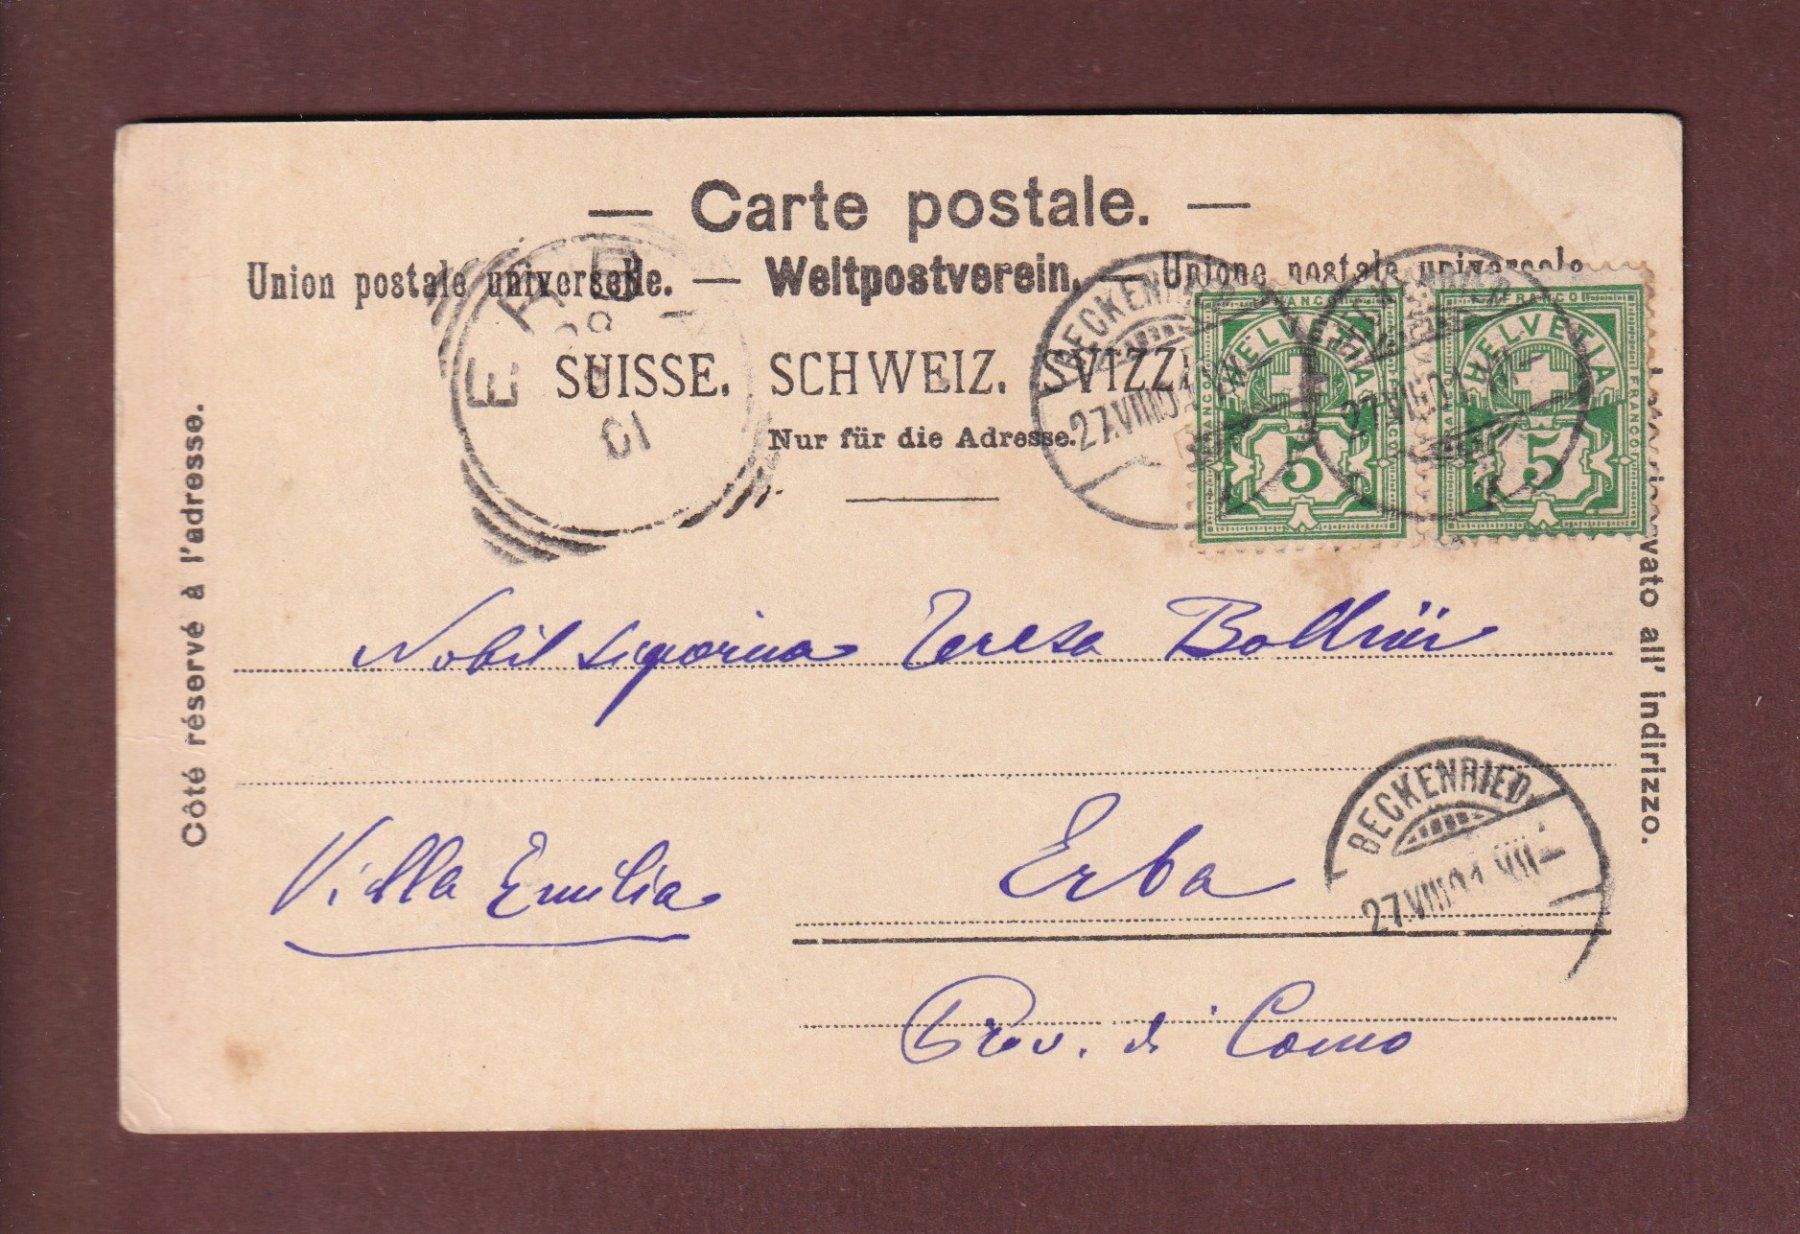 — Carte postale. —
Union postale universelle. — Weltpostverein. — Unione postale universale
SUISSE. SCHWEIZ. SVIZZ
Nur für die Adresse.
Côté réservé à l'adresse.
vato all' indirizzo.
ERBA
01
BECKENRIED
27.VIII.01
FRANCO
HELVETIA
FRANCO
5
BECKENRIED
27.VIII.01
FRANCO
HELVETIA
FRANCO
5
Nobil Signorina Teresa
BECKENRIED
27.VIII.01.VII
Villa Emilia
Erba
Prov. di Como